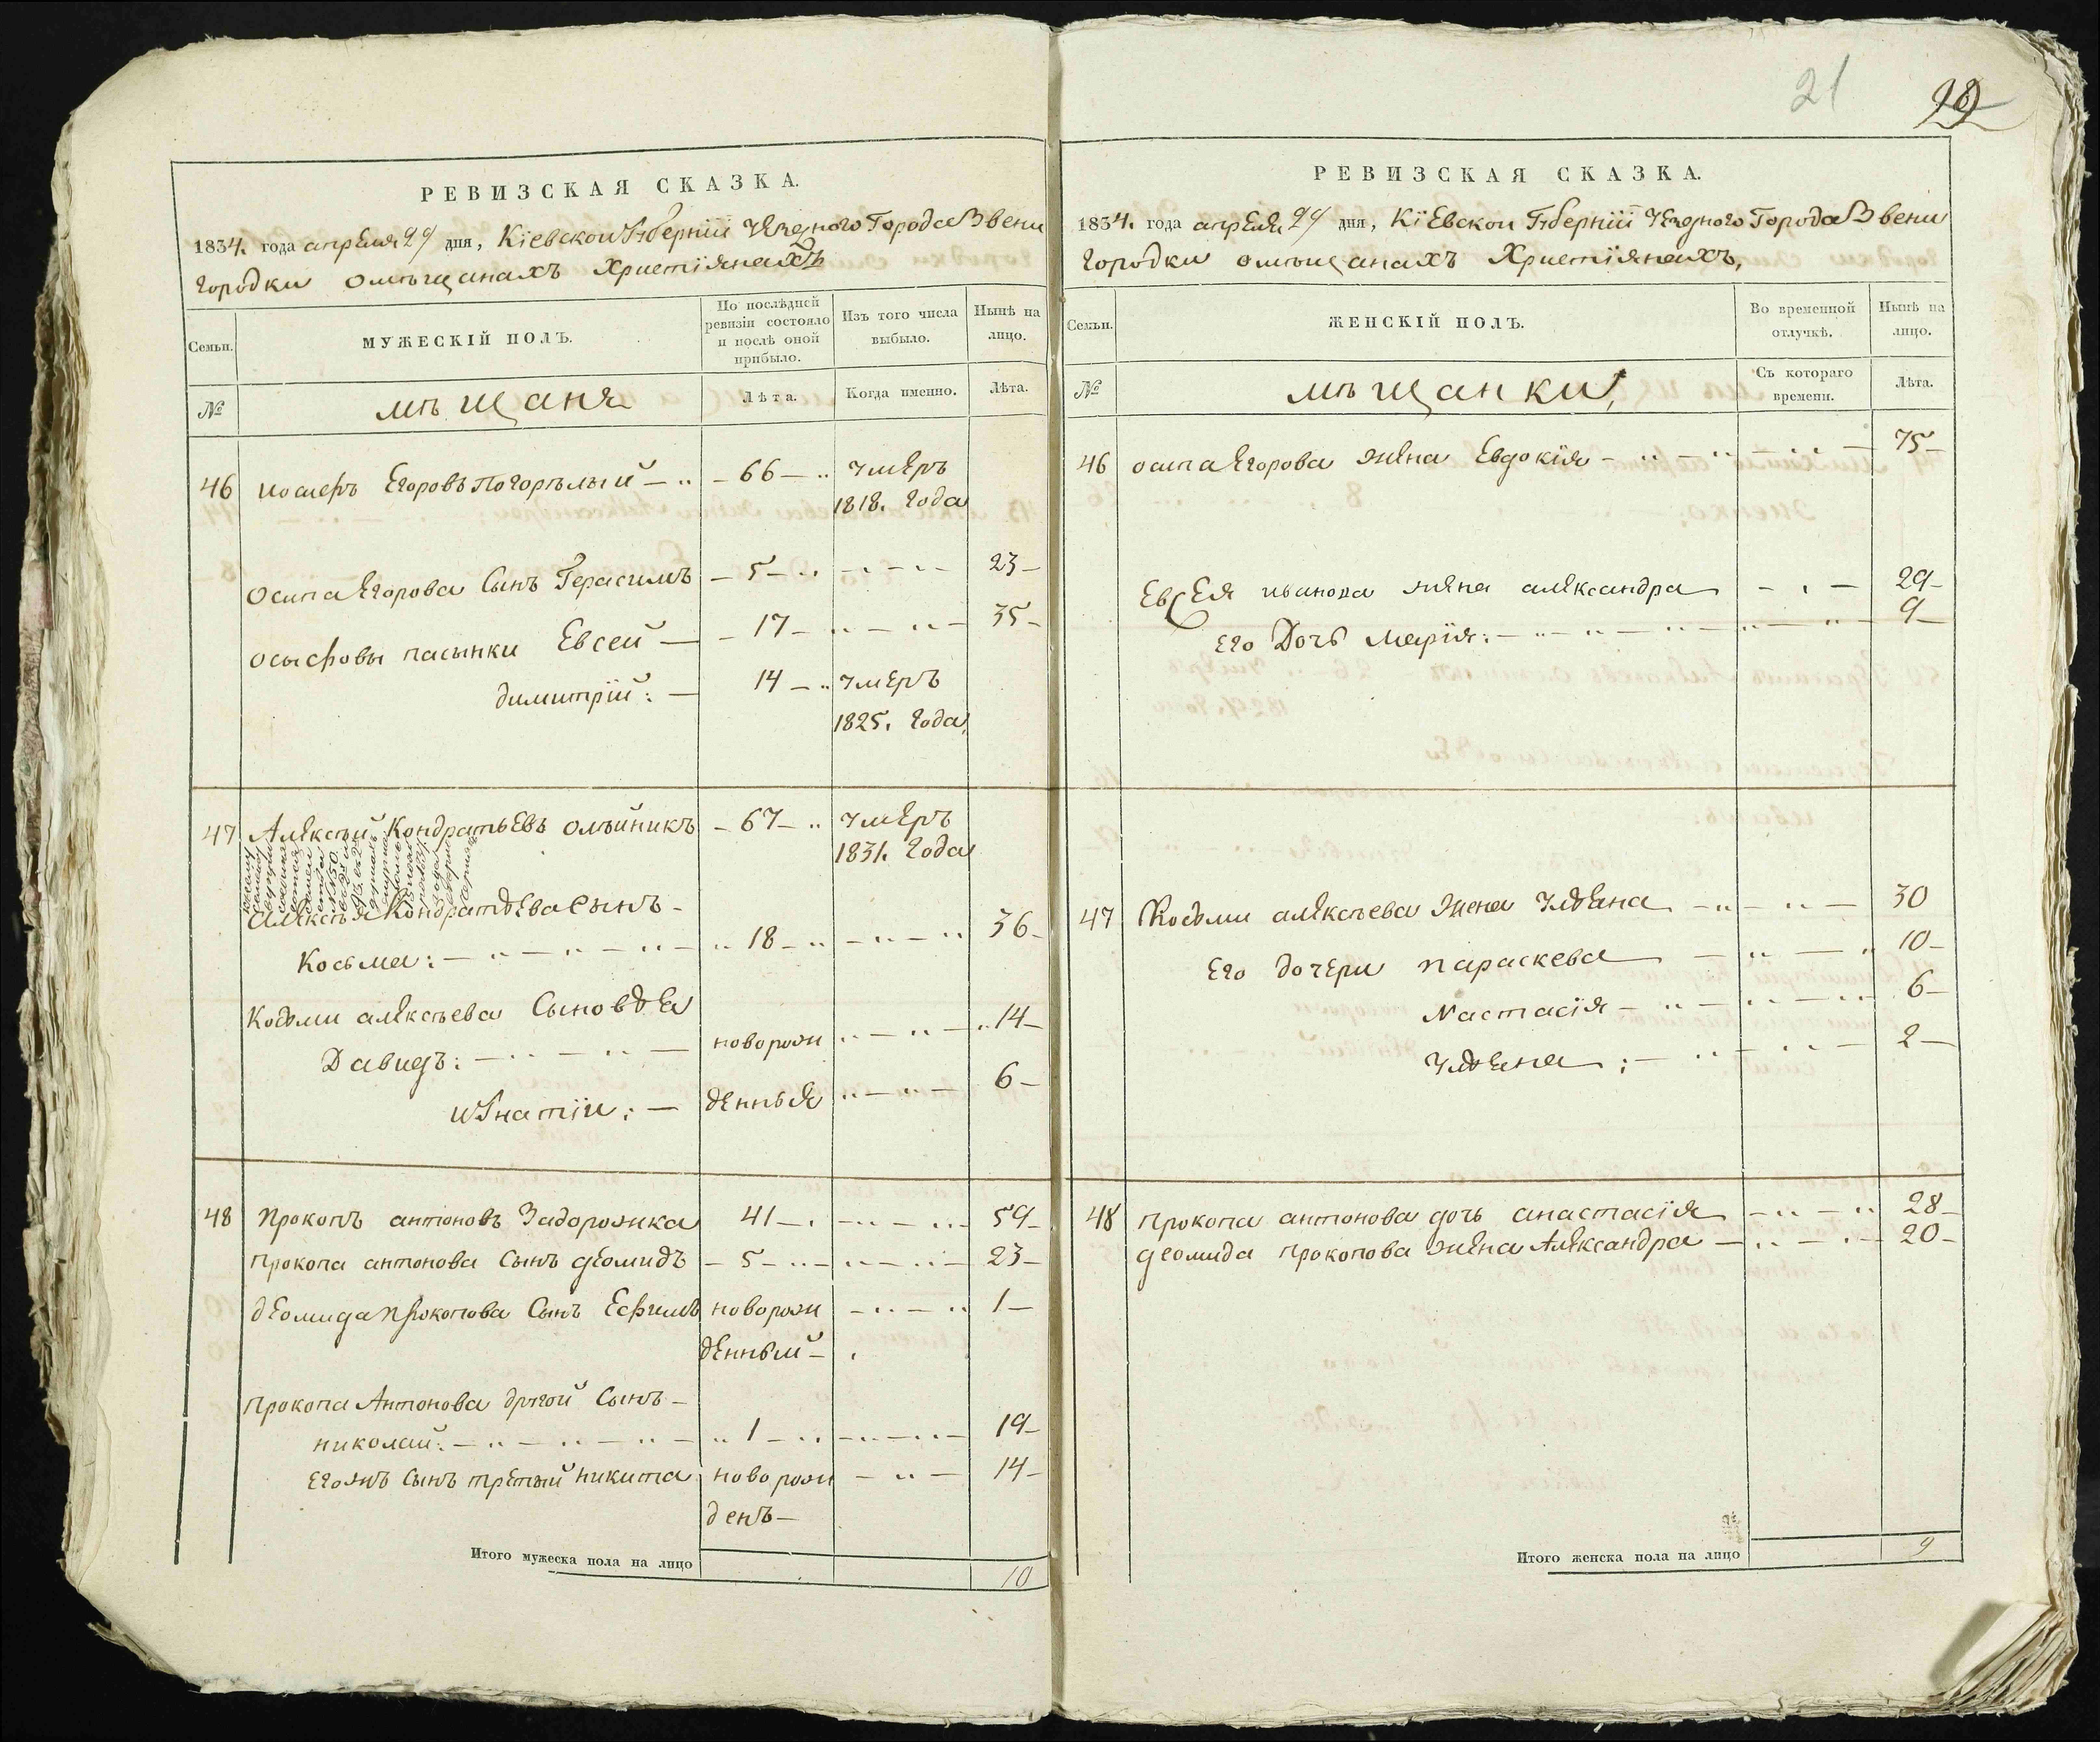 РЕВИЗСКАЯ СКАЗКА.
1834. года апреля 29 дня, Кіевской Губерніи Уезднаго Города Звени
городки о мѣщанахъ Христіянахъ
Семьи.
МУЖЕСКІЙ ПОЛЪ.
По послѣдней ревизіи состояло и послѣ оной прибыло.
Изъ того числа выбыло.
Нынѣ на лицо.
№
мѣщаня
Лѣта.
Когда именно.
Лѣта.
46 иосифъ Егоровъ Погорѣлый — 66 — умеръ
1818. года
осипа Егорова сынъ Герасимъ — 5 — 23
осифовы пасынки Евсей — 17 — 35
димитрій: — 14 — умеръ
1825. года
47 Алексѣй Кондратьевъ олѣйникъ — 67 — умеръ
1831. года
Алексѣя Кондратьева сынъ
Косьма: — 18 — 36
Косьми алексѣева сыновья
Давидъ: — новорож — 14
игнатіи: — денныя — 6
48 прокопъ антоновъ Задорожка 41 — 59
прокопа антонова сынъ деомидъ — 5 — 23
деомида прокопова сынъ Ефимъ новорож — 1
денный
прокопа Антонова другой сынъ
николай: — 1 — 19
его жъ сынъ третий никита новорож — 14
денъ
Итого мужеска пола на лицо 10
21
РЕВИЗСКАЯ СКАЗКА.
1834. года апреля 29 дня, Кіевской Губерніи Уезднаго Города Звени
городки о мѣщанахъ Христіянахъ,
Семьи.
ЖЕНСКІЙ ПОЛЪ.
Во временной отлучкѣ.
Нынѣ на лицо.
№
мѣщанки,
Съ котораго времени.
Лѣта.
46 осипа Егорова жена Евдокія — 75
Евсея иванова жена александра — 29
его Дочь Марія: — 9
47 Косьми алексѣева жена Ульяна — 30
его дочери параскева — 10
Настасія — 6
Ульяна: — 2
48 прокопа антонова дочь анастасія — 28
деомида прокопова жена Александра — 20
Итого женска пола на лицо 9